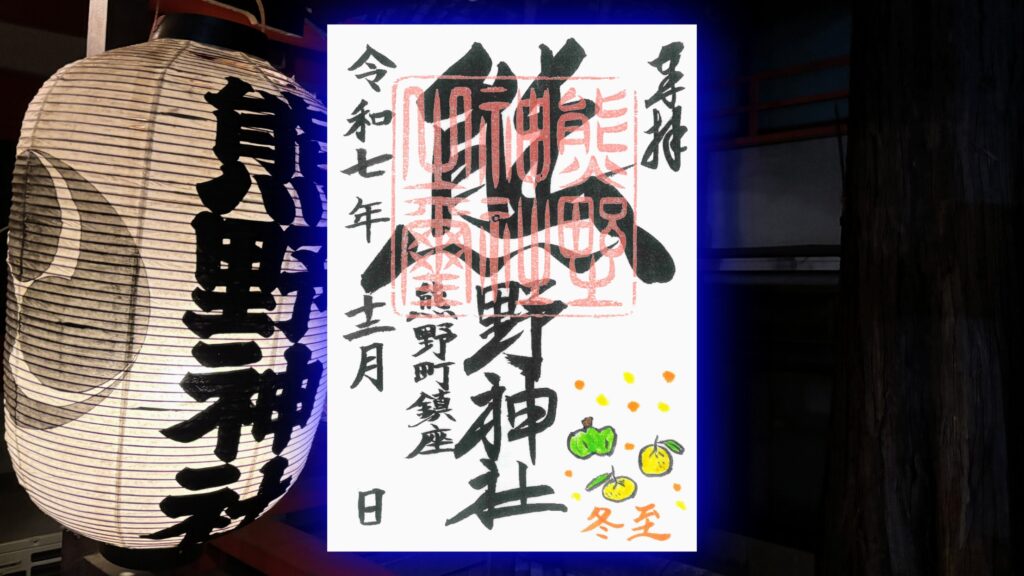 熊野神社
奉拝
熊野神社
熊野
神社
之璽
熊野町鎮座
令和七年 十二月 日
冬至